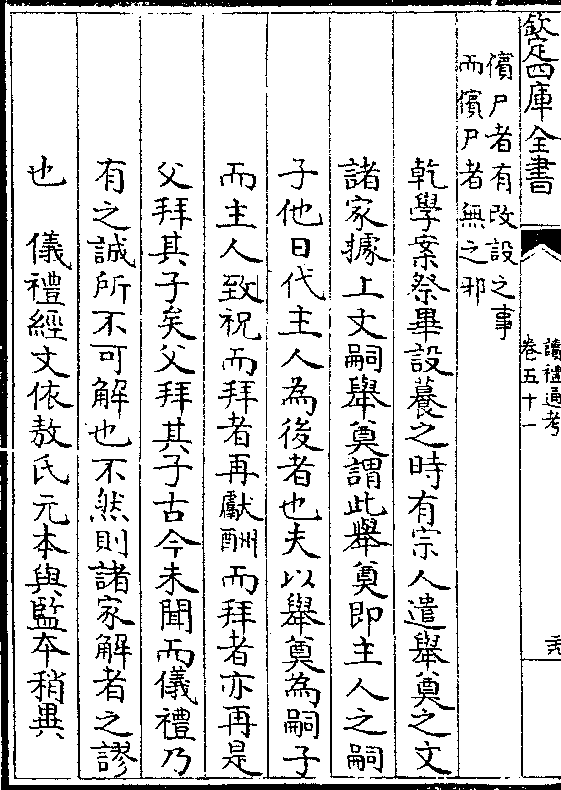 欽定四庫全書
讀禮通考
卷五十一
儐尸者有改設之事
而儐尸者無之邪
乾學案祭畢設養之時有宗人遣舉奠之文
諸家據上文嗣舉奠謂此舉奠即主人之嗣
子他日代主人為後者也夫以舉奠為嗣子
而主人致祝而拜者再獻酬而拜者亦再是
父拜其子矣父拜其子古今未聞而儀禮乃
有之誠所不可解也不然則諸家解者之謬
也　儀禮經文依敖氏元本與監本稍異